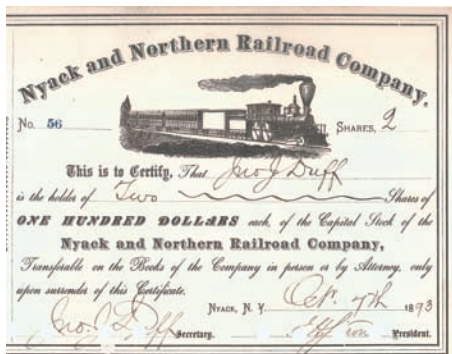 Nyack and Northern Railroad Company.
No. 56 SHARES, 2
This is to Certify, That Jno J Duff
is the holder of Two Shares of
ONE HUNDRED DOLLARS each, of the Capital Stock of the
Nyack and Northern Railroad Company,
Transferable on the Books of the Company in person or by Attorney, only
upon surrender of this Certificate.
NYACK, N. Y. Oct. 7th 1893
Jno. J. Duff Secretary. President.